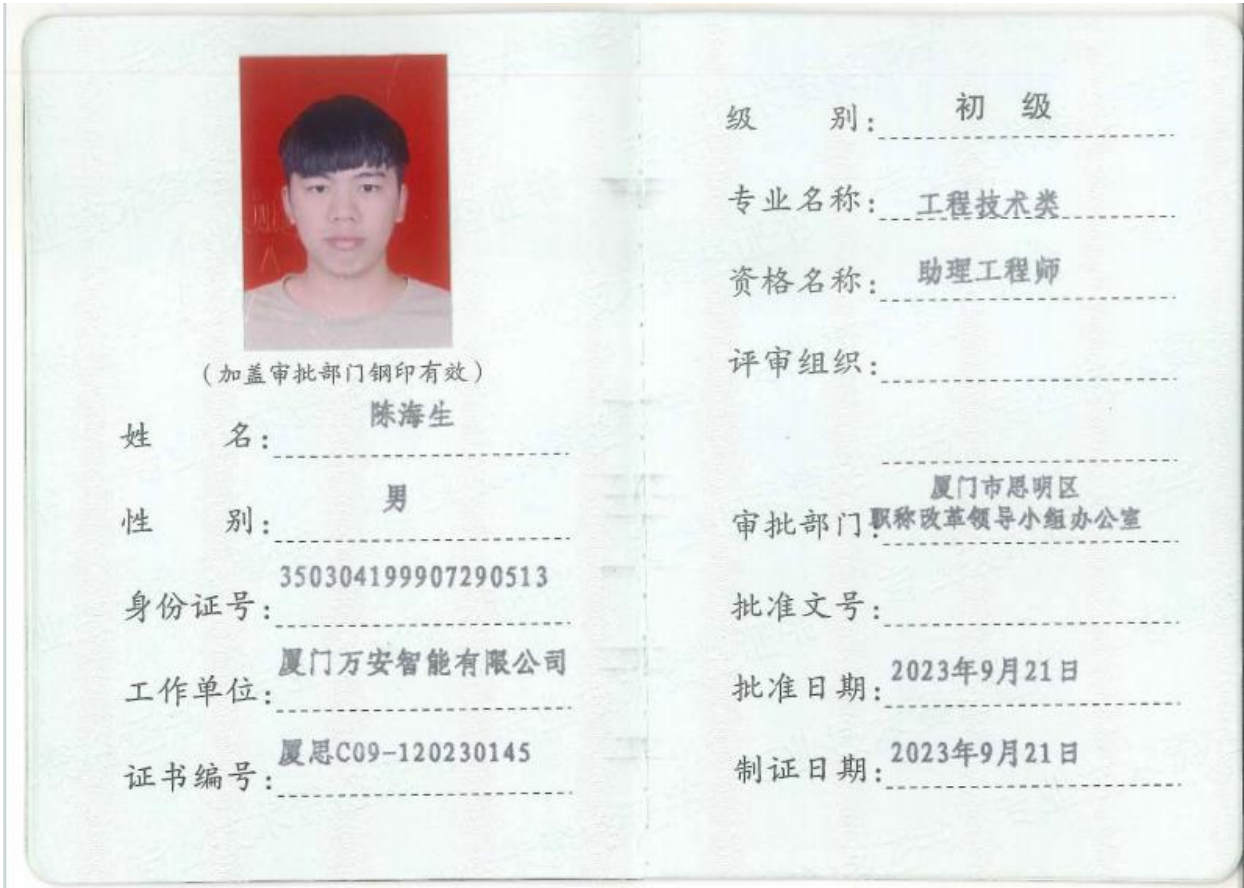 (加盖审批部门钢印有效)
姓 名: 陈海生
性 别: 男
身份证号: 350304199907290513
工作单位: 厦门万安智能有限公司
证书编号: 厦思C09-120230145
级 别: 初 级
专业名称: 工程技术类
资格名称: 助理工程师
评审组织:
厦门市思明区
审批部门: 职称改革领导小组办公室
批准文号:
批准日期: 2023年9月21日
制证日期: 2023年9月21日